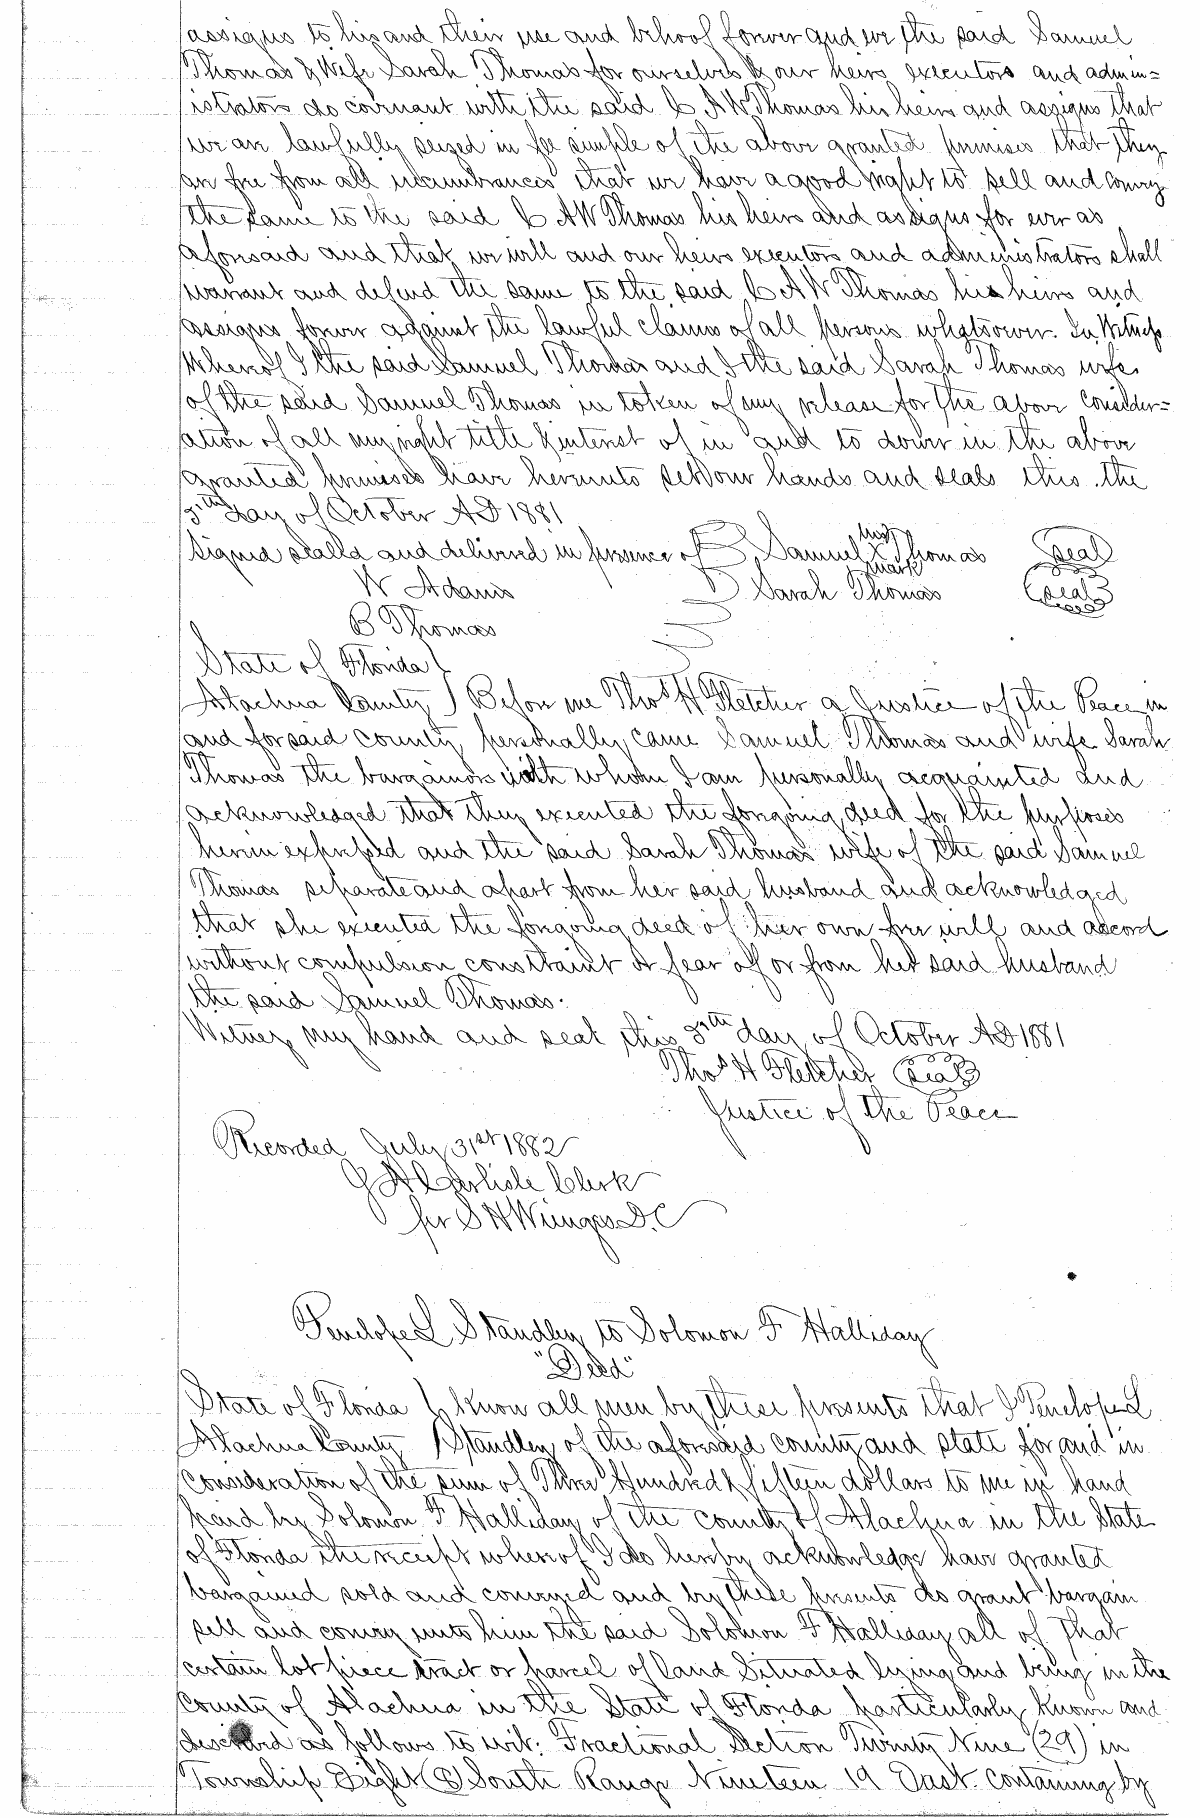 assigns to his and their use and behoof forever and we the said Samuel
Thomas & Wife Sarah Thomas for ourselves & our heirs executors and admin=
istrators do covenant with the said C A W Thomas his heirs and assigns that
we are lawfully seized in fee simple of the above granted premises that they
are free from all incumbrances that we have a good right to sell and convey
the same to the said C A W Thomas his heirs and assigns for ever as
aforesaid and that we will and our heirs executors and administrators shall
warrant and defend the same to the said C A W Thomas his heirs and
assigns forever against the lawful claims of all persons whatsoever. In Witness
Whereof I the said Samuel Thomas and I the said Sarah Thomas wife
of the said Samuel Thomas in token of my release for the above consider=
ation of all my right title & interest of in and to dower in the above
granted premises have hereunto set our hands and seals this the
5th Day of October AD 1881
Signed sealed and delivered in presence of Samuel X Thomas seal
mark
W Adams Sarah Thomas seal
B Thomas
State of Florida
Alachua County Before me Thos H Fletcher a Justice of the Peace in
and for said county personally came Samuel Thomas and wife Sarah
Thomas the bargainors with whom I am personally acquainted and
acknowledged that they executed the foregoing deed for the purposes
herein expressed and the said Sarah Thomas wife of the said Samuel
Thomas separate and apart from her said husband and acknowledged
that she executed the foregoing deed of her own free will and accord
without compulsion constraint or fear of or from her said husband
the said Samuel Thomas.
Witness my hand and seal this 5th day of October AD 1881
Thos H Fletcher seal
Justice of the Peace
Recorded July 31st 1882
J A Carlisle Clerk
per S H Wienges D.C
Penelope L Standley to Solomon F Halliday
"Deed"
State of Florida Know all men by these presents that I Penelope L
Alachua County Standley of the aforesaid county and state for and in
consideration of the sum of Three Hundred & fifteen dollars to me in hand
paid by Solomon F Halliday of the county of Alachua in the State
of Florida the receipt whereof I do hereby acknowledge have granted
bargained sold and conveyed and by these presents do grant bargain
sell and convey unto him the said Solomon F Halliday all of that
certain lot piece tract or parcel of land situated lying and being in the
county of Alachua in the State of Florida particularly known and
described as follows to wit: Fractional Section Twenty Nine (29) in
Township Eight (8) South Range Nineteen 19 East containing by